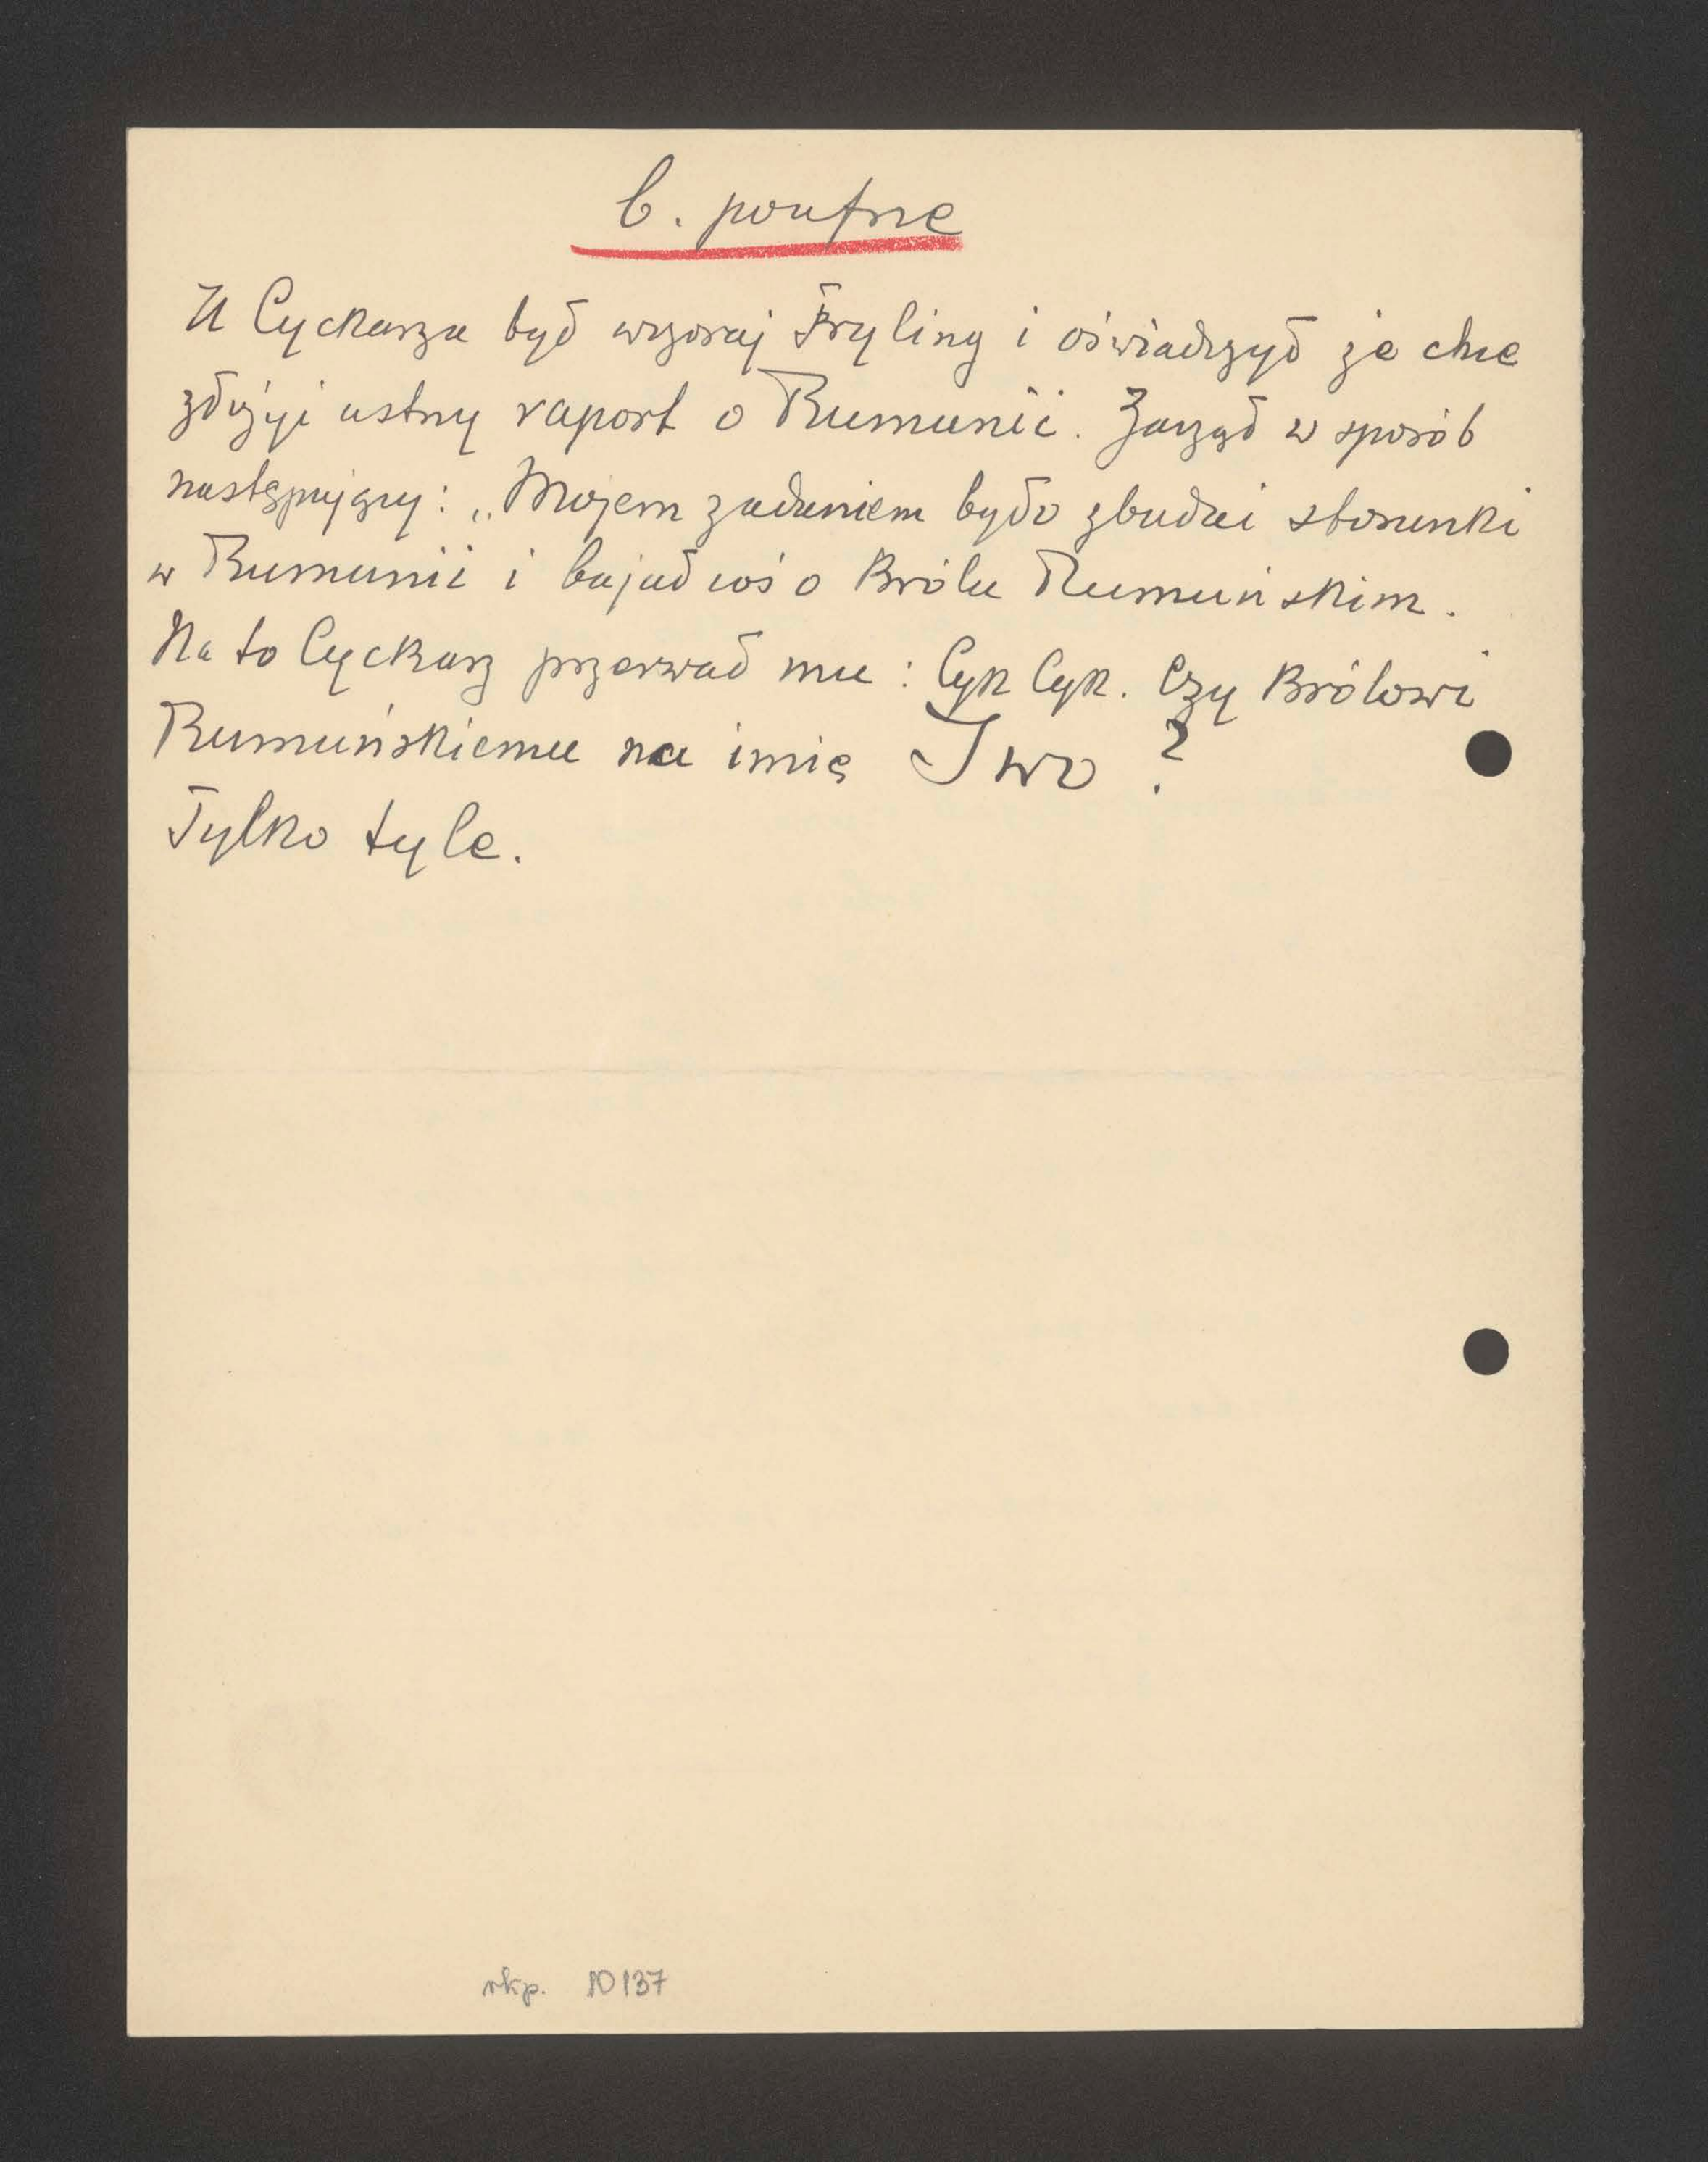 b. poufne
U Cyckarza był wczoraj Fryling i oświadczył że chce
złożyć ustny raport o Rumunii. Zaczął w sposób
następujący: „Mojem zadaniem było zbudać stosunki
w Rumunii i bajał coś o Królu Rumuńskim.
Na to Cyckarz przerwał mu: Cyk Cyk. Czy Królowi
Rumuńskiemu na imię Iwo?
Tylko tyle.
rkp. 10137